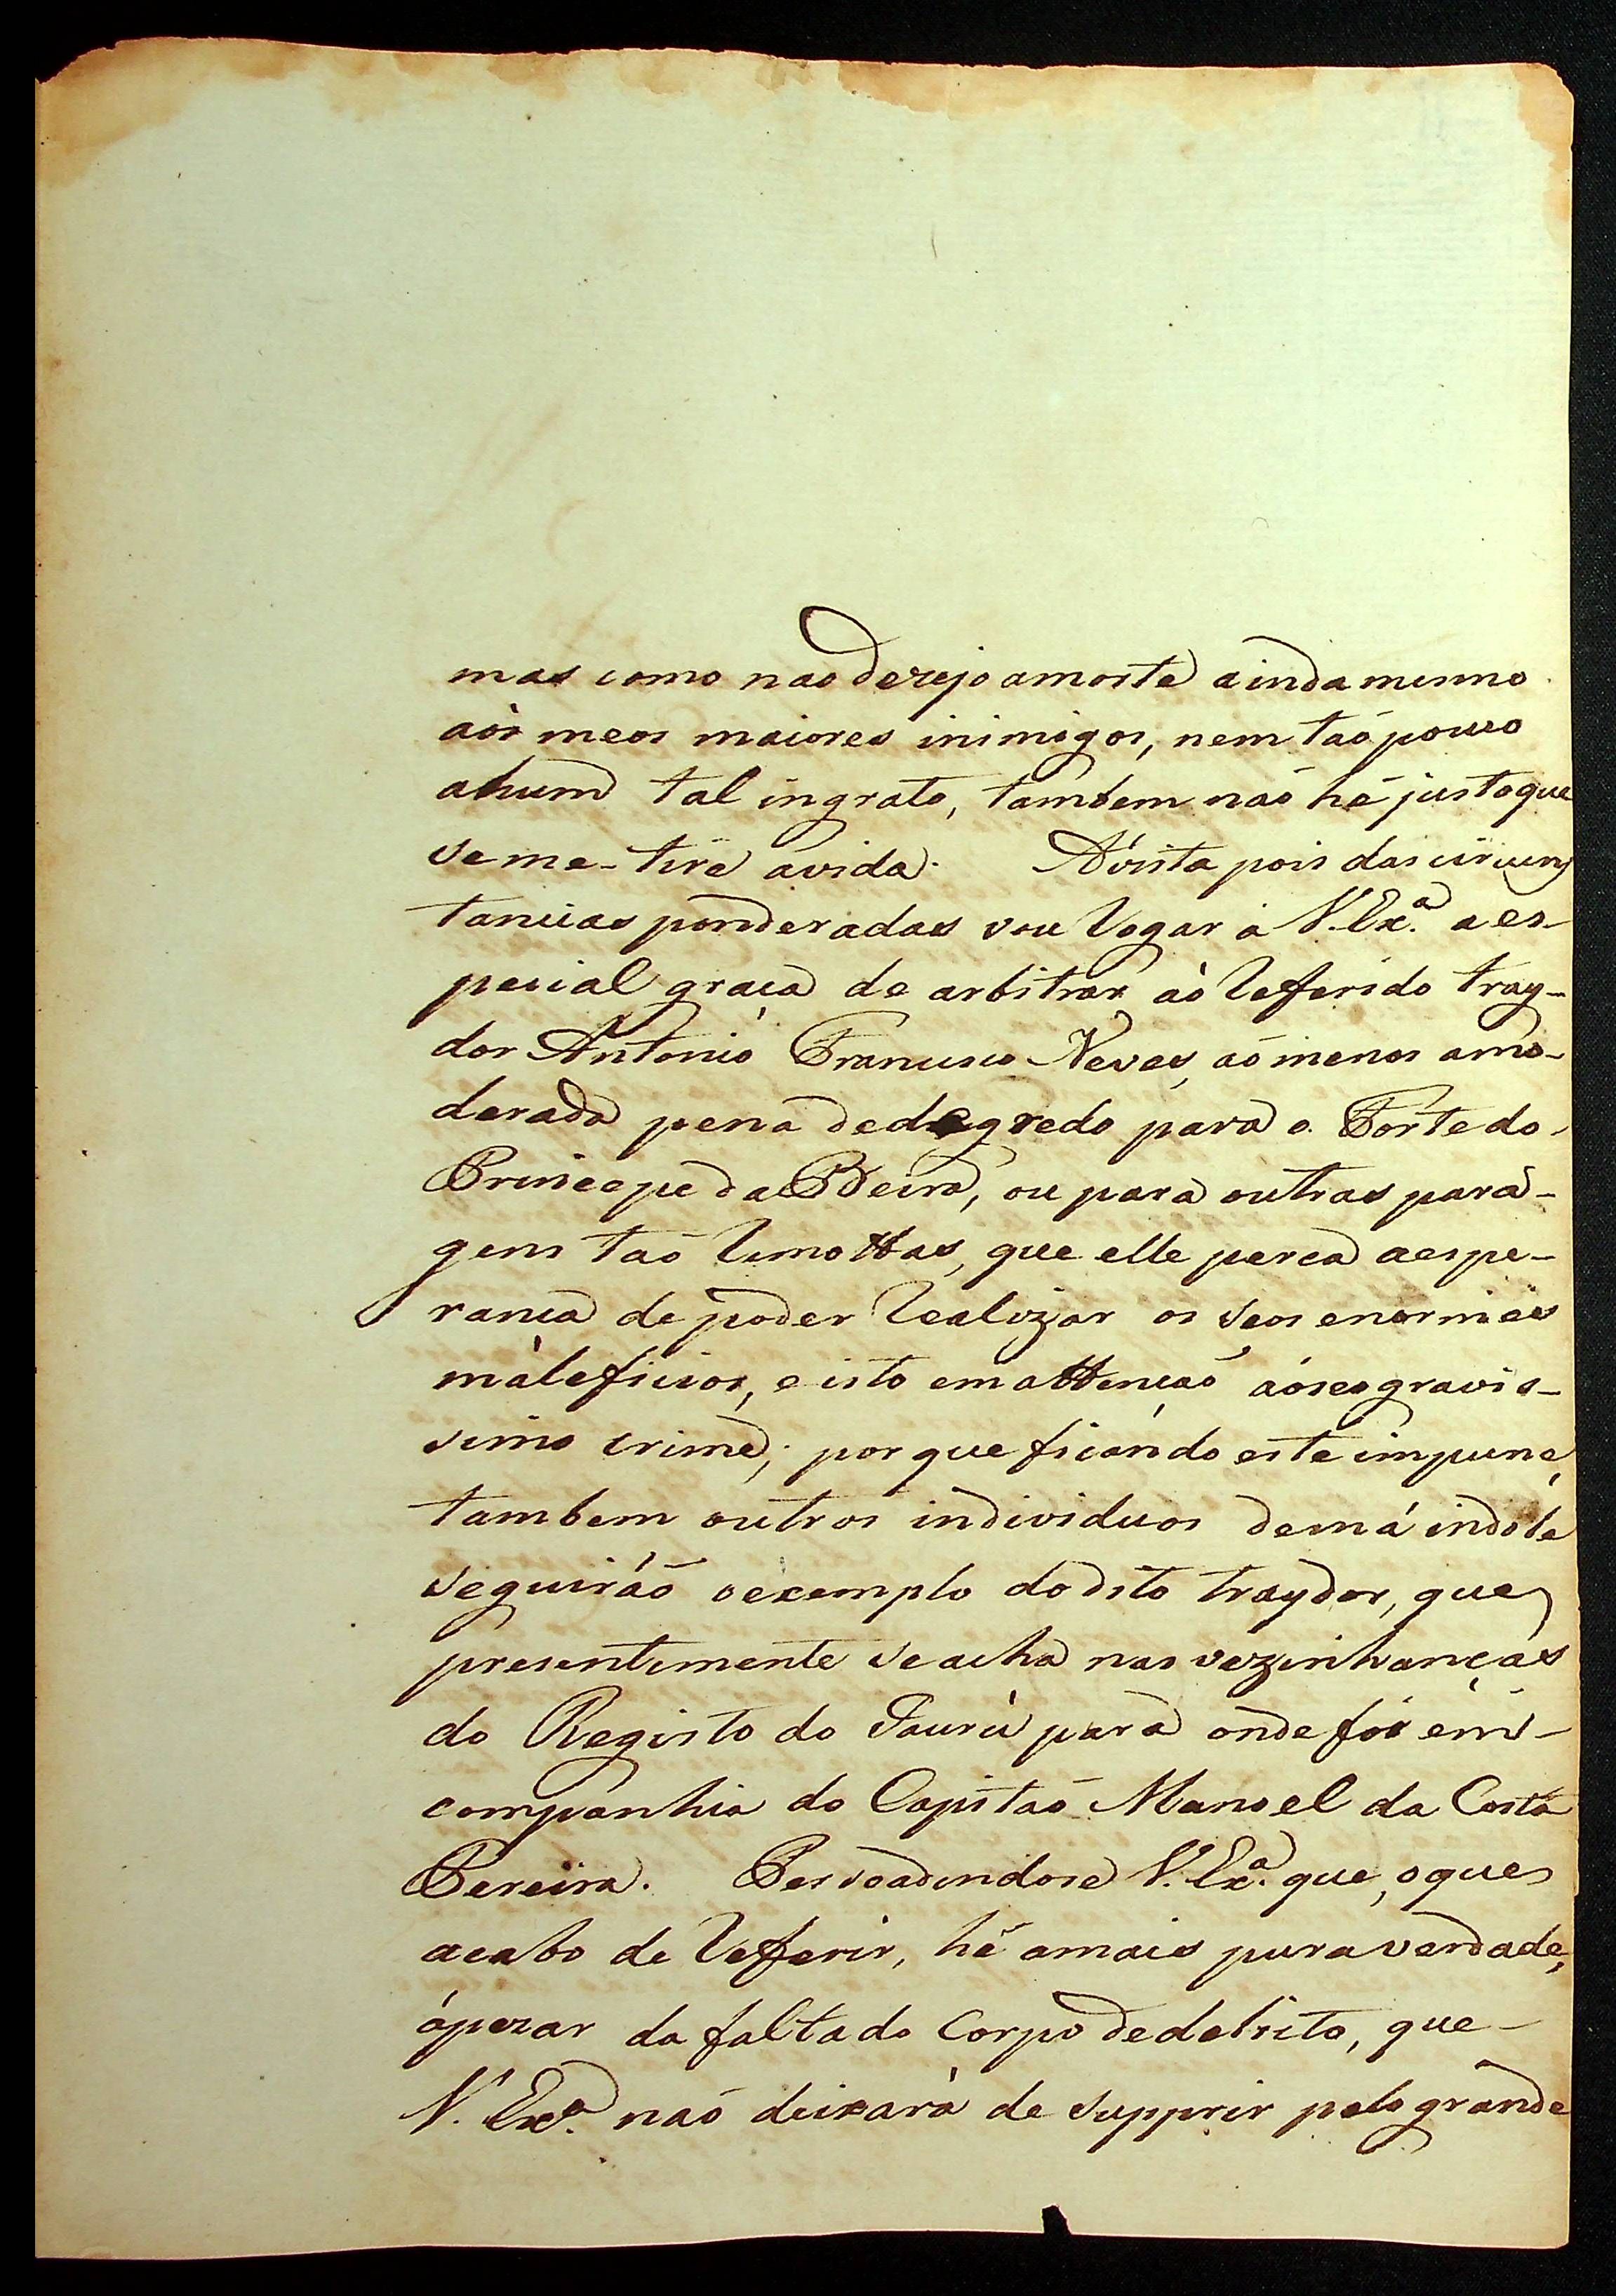 mas como nao dezejo amorte ainda mesmo
aòs meos maiores inimigos, nem taõ pouco
ahum tal ingrato, tambem naõ hé justo que
se me-tire avida. Àvista pois das circuns
tancias ponderadas vou rogar a V. Ex.ª a es-
pecial graça de arbitrar aò refferido tray-
dor Antonio Francisco Neves, aõ menos amo-
derada pena dedegredo para o Forte do
Princepe da Beira, ou para outras para-
gens taõ remottas, que elle perca aespe-
rança de poder realizar os seos enormes
maleficios, e isto em attençaõ áoseo gravis-
simo crime; por que ficando este impune,
tambem outros individuos demá indole
seguiráõ oexemplo do dito traydor, que
presentemente se acha nas vezinhanças
do Registo do Jaurú para onde foi em-
companhia do Capitaõ Manoel da Costa
Pereira. Persoadindose V. Ex.ª que, oque
acabo de refferir, hé amais pura verdade,
ápezar da falta do Corpo dedelicto, que-
V. Ex.ª naõ deixará de supprir pelo grande